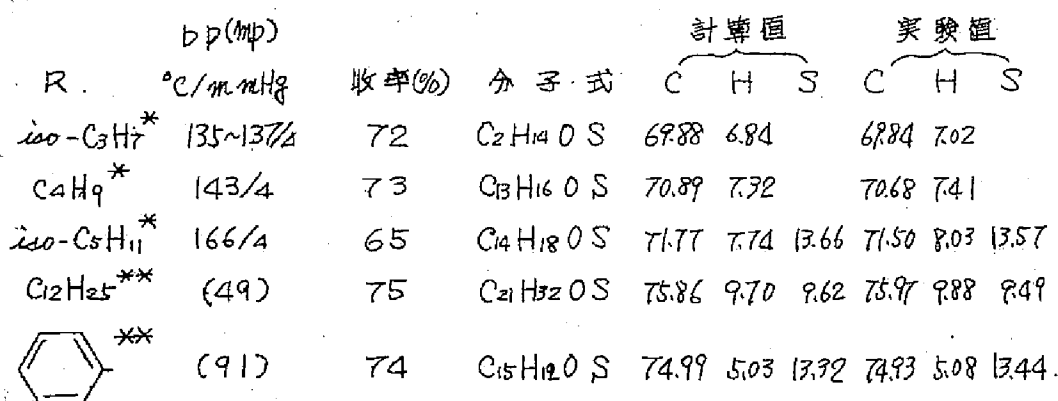 bp(mp) 計算値 実験値
R. °C/mmHg 收率(%) 分子式 C H S C H S
iso-C3H7* 135~137/4 72 C2H14OS 69.88 6.84 69.84 7.02
C4H9* 143/4 73 C13H16OS 70.89 7.32 70.68 7.41
iso-C5H11* 166/4 65 C14H18OS 71.77 7.74 13.66 71.50 8.03 13.57
C12H25** (49) 75 C21H32OS 75.86 9.70 9.62 75.97 9.88 9.49
** (91) 74 C15H12OS 74.99 5.03 13.32 74.93 5.08 13.44.